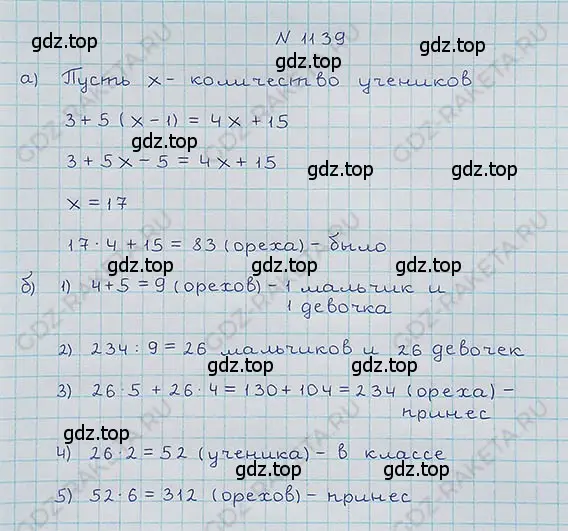 N 1139
gdz.top gdz.top
а) Пусть x - количество учеников
3 + 5 (x - 1) = 4x + 15
gdz.top gdz.top
3 + 5x - 5 = 4x + 15
x = 17
gdz.top gdz.top
17 · 4 + 15 = 83 (ореха) - было
gdz.top gdz.top
б) 1) 4 + 5 = 9 (орехов) - 1 мальчик и
1 девочка
2) 234 : 9 = 26 мальчиков и 26 девочек
gdz.top gdz.top
3) 26 · 5 + 26 · 4 = 130 + 104 = 234 (ореха) -
принес
gdz.top gdz.top
4) 26 · 2 = 52 (ученика) - в классе
gdz.top gdz.top
5) 52 · 6 = 312 (орехов) - принес
gdz.top gdz.top
GDZ-RAKETA.RU